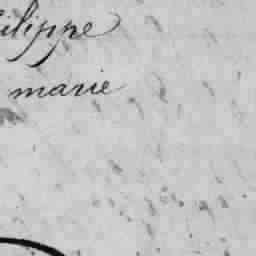 ilippe
marie